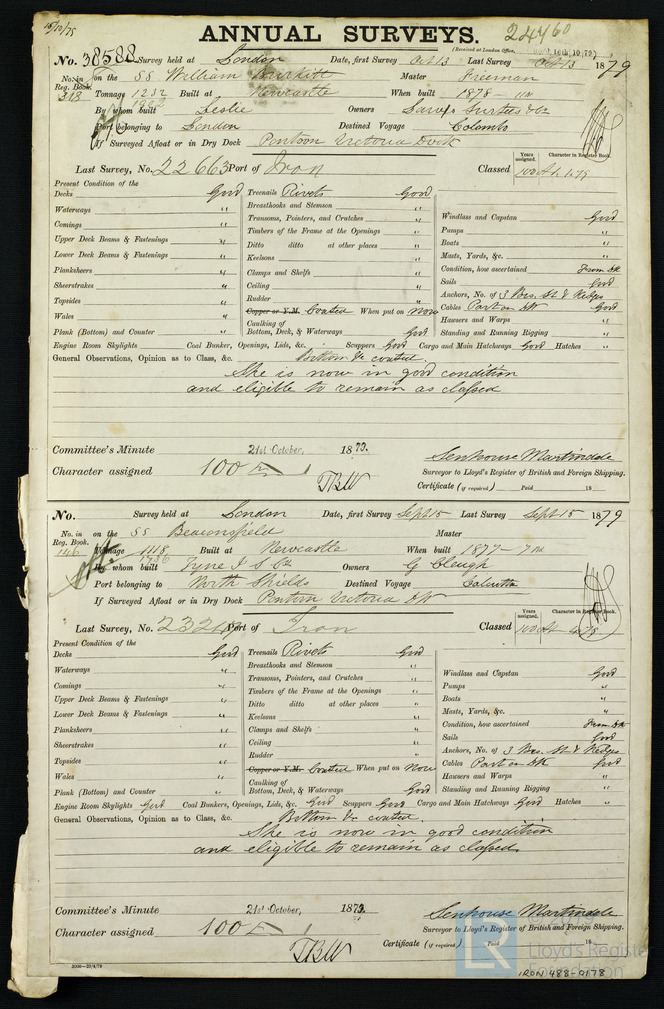 15/10/75
ANNUAL SURVEYS. 24760
(Received at London Office, 16th, 10/79)
No. 38588 Survey held at London Date, first Survey Oct 13 Last Survey Oct 13 1879
No. in Reg. Book. 313 on the SS William Burkitt Master Freeman
Tonnage 1232 Built at Newcastle When built 1878
By whom built Leslie Owners
Port belonging to London Destined Voyage Colombo
If Surveyed Afloat or in Dry Dock Pontoon Victoria Dock
Last Survey, No. 22663 Port of Iron Classed
Years assigned. Character in Register Book.
Present Condition of the
Decks Good Treenails Rivets Good
Waterways " Breasthooks and Stemson "
Comings " Transoms, Pointers, and Crutches " Windlass and Capstan Good
Upper Deck Beams & Fastenings " Timbers of the Frame at the Openings " Pumps "
Lower Deck Beams & Fastenings " Ditto ditto at other places " Boats "
Planksheers " Keelsons " Masts, Yards, &c. "
Sheerstrakes " Clamps and Shelfs " Condition, how ascertained From Dk
Topsides " Ceiling " Sails Good
Wales " Rudder " Anchors, No. of 3 Bos. St & Kedges
Copper or Y.M. Coated When put on Now Cables Part on Dk Good
Plank (Bottom) and Counter " Caulking of Bottom, Deck, & Waterways Good Hawsers and Warps "
Standing and Running Rigging "
Engine Room Skylights Coal Bunker, Openings, Lids, &c. Scuppers Good Cargo and Main Hatchways Good Hatches "
General Observations, Opinion as to Class, &c. Bottom &c coated.
She is now in good condition
and eligible to remain as classed
Committee's Minute 21st October, 1879. Senhouse Martindale
Character assigned 100 A 1 Surveyor to Lloyd's Register of British and Foreign Shipping.
TBW Certificate (if required) Paid 18
No. Survey held at London Date, first Survey Sept 15 Last Survey Sept 15 1879
No. in Reg. Book. 146 on the SS Beaconsfield Master
Tonnage 1118 Built at Newcastle When built 1877
By whom built Tyne I S Co Owners G Cleugh
Port belonging to North Shields Destined Voyage Calcutta
If Surveyed Afloat or in Dry Dock Pontoon Victoria Dk
Last Survey, No. Port of Iron Classed
Years assigned. Character in Register Book.
Present Condition of the
Decks Good Treenails Rivets Good
Waterways " Breasthooks and Stemson " Windlass and Capstan Good
Comings " Transoms, Pointers, and Crutches " Pumps "
Upper Deck Beams & Fastenings " Timbers of the Frame at the Openings " Boats "
Lower Deck Beams & Fastenings " Ditto ditto at other places " Masts, Yards, &c. "
Planksheers " Keelsons " Condition, how ascertained From Dk
Sheerstrakes " Clamps and Shelfs " Sails Good
Topsides " Ceiling " Anchors, No. of 3 Bos. St & Kedges
Wales " Rudder " Cables Part on Dk Good
Copper or Y.M. Coated When put on Now Hawsers and Warps "
Plank (Bottom) and Counter " Caulking of Bottom, Deck, & Waterways Good Standing and Running Rigging "
Engine Room Skylights Good Coal Bunkers, Openings, Lids, &c. Good Scuppers Good Cargo and Main Hatchways Good Hatches "
General Observations, Opinion as to Class, &c. Bottom &c coated.
She is now in good condition
and eligible to remain as classed.
Committee's Minute 21st October, 1879. Senhouse Martindale
Character assigned 100 A 1 Surveyor to Lloyd's Register of British and Foreign Shipping.
TBW Certificate (if required) Paid 18
LR Lloyd's Register
Foundation
IRON 488-0178